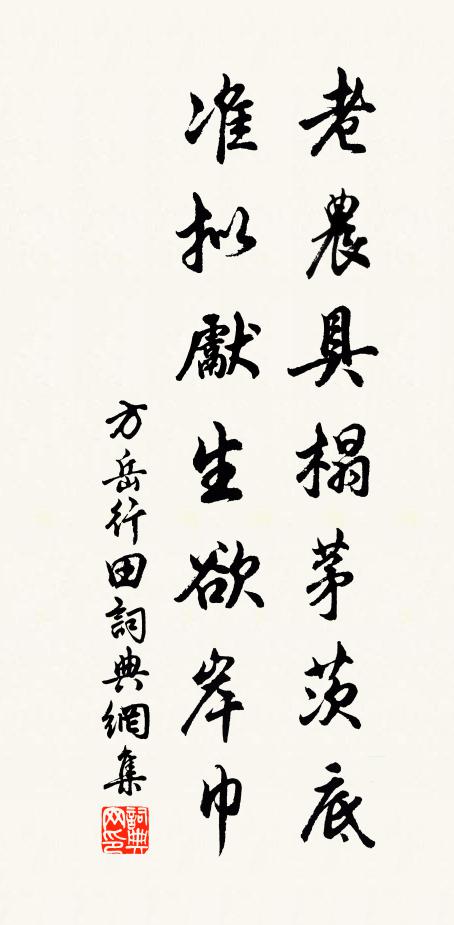 老農具榻茅茨底
准拟獻生欲岸巾
方岳行田詞典網集
詞典網印